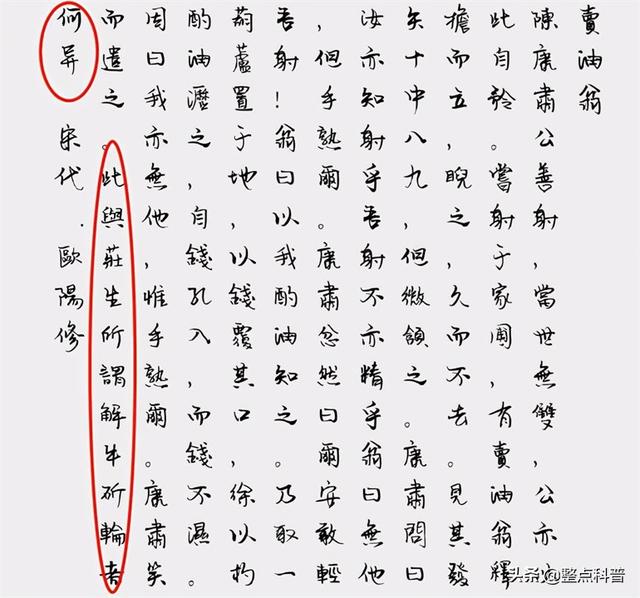 賣油翁
陳康肅公善射,當世無雙,公亦
此自矜。嘗射于家圃,有賣油翁釋
擔而立,睨之,久而不去。見其發
矢十中八九,但微頷之。康肅問曰
汝亦知射乎吾射不亦精乎。翁曰無他
,但手熟爾。康肅忿然曰爾安敢輕
吾射!翁曰以我酌油知之。乃取一
葫蘆置于地,以錢覆其口,徐以杓
酌油瀝之,自錢孔入,而錢不濕。
因曰我亦無他,惟手熟爾。康肅笑
而遣之。此與莊生所謂解牛斫輪者
何异 宋代·歐陽修
头条 @整点科普